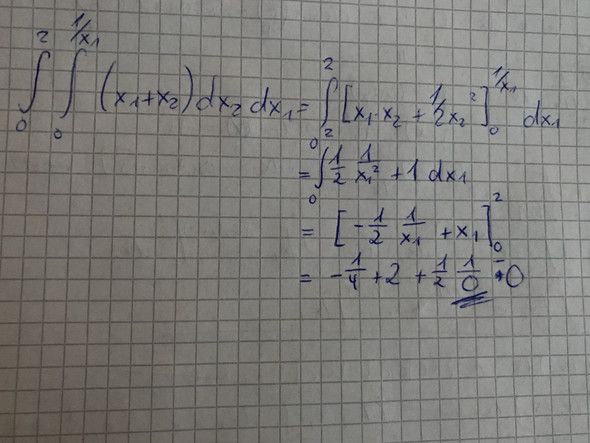 ∫₀² ∫₀^(1/x₁) (x₁+x₂) dx₂ dx₁ = ∫₀² [x₁·x₂ + 1/2 x₂²]₀^(1/x₁) dx₁
= ∫₀² 1/2 1/x₁² + 1 dx₁
= [-1/2 1/x₁ + x₁]₀²
= -1/4 + 2 + 1/2 1/0 - 0